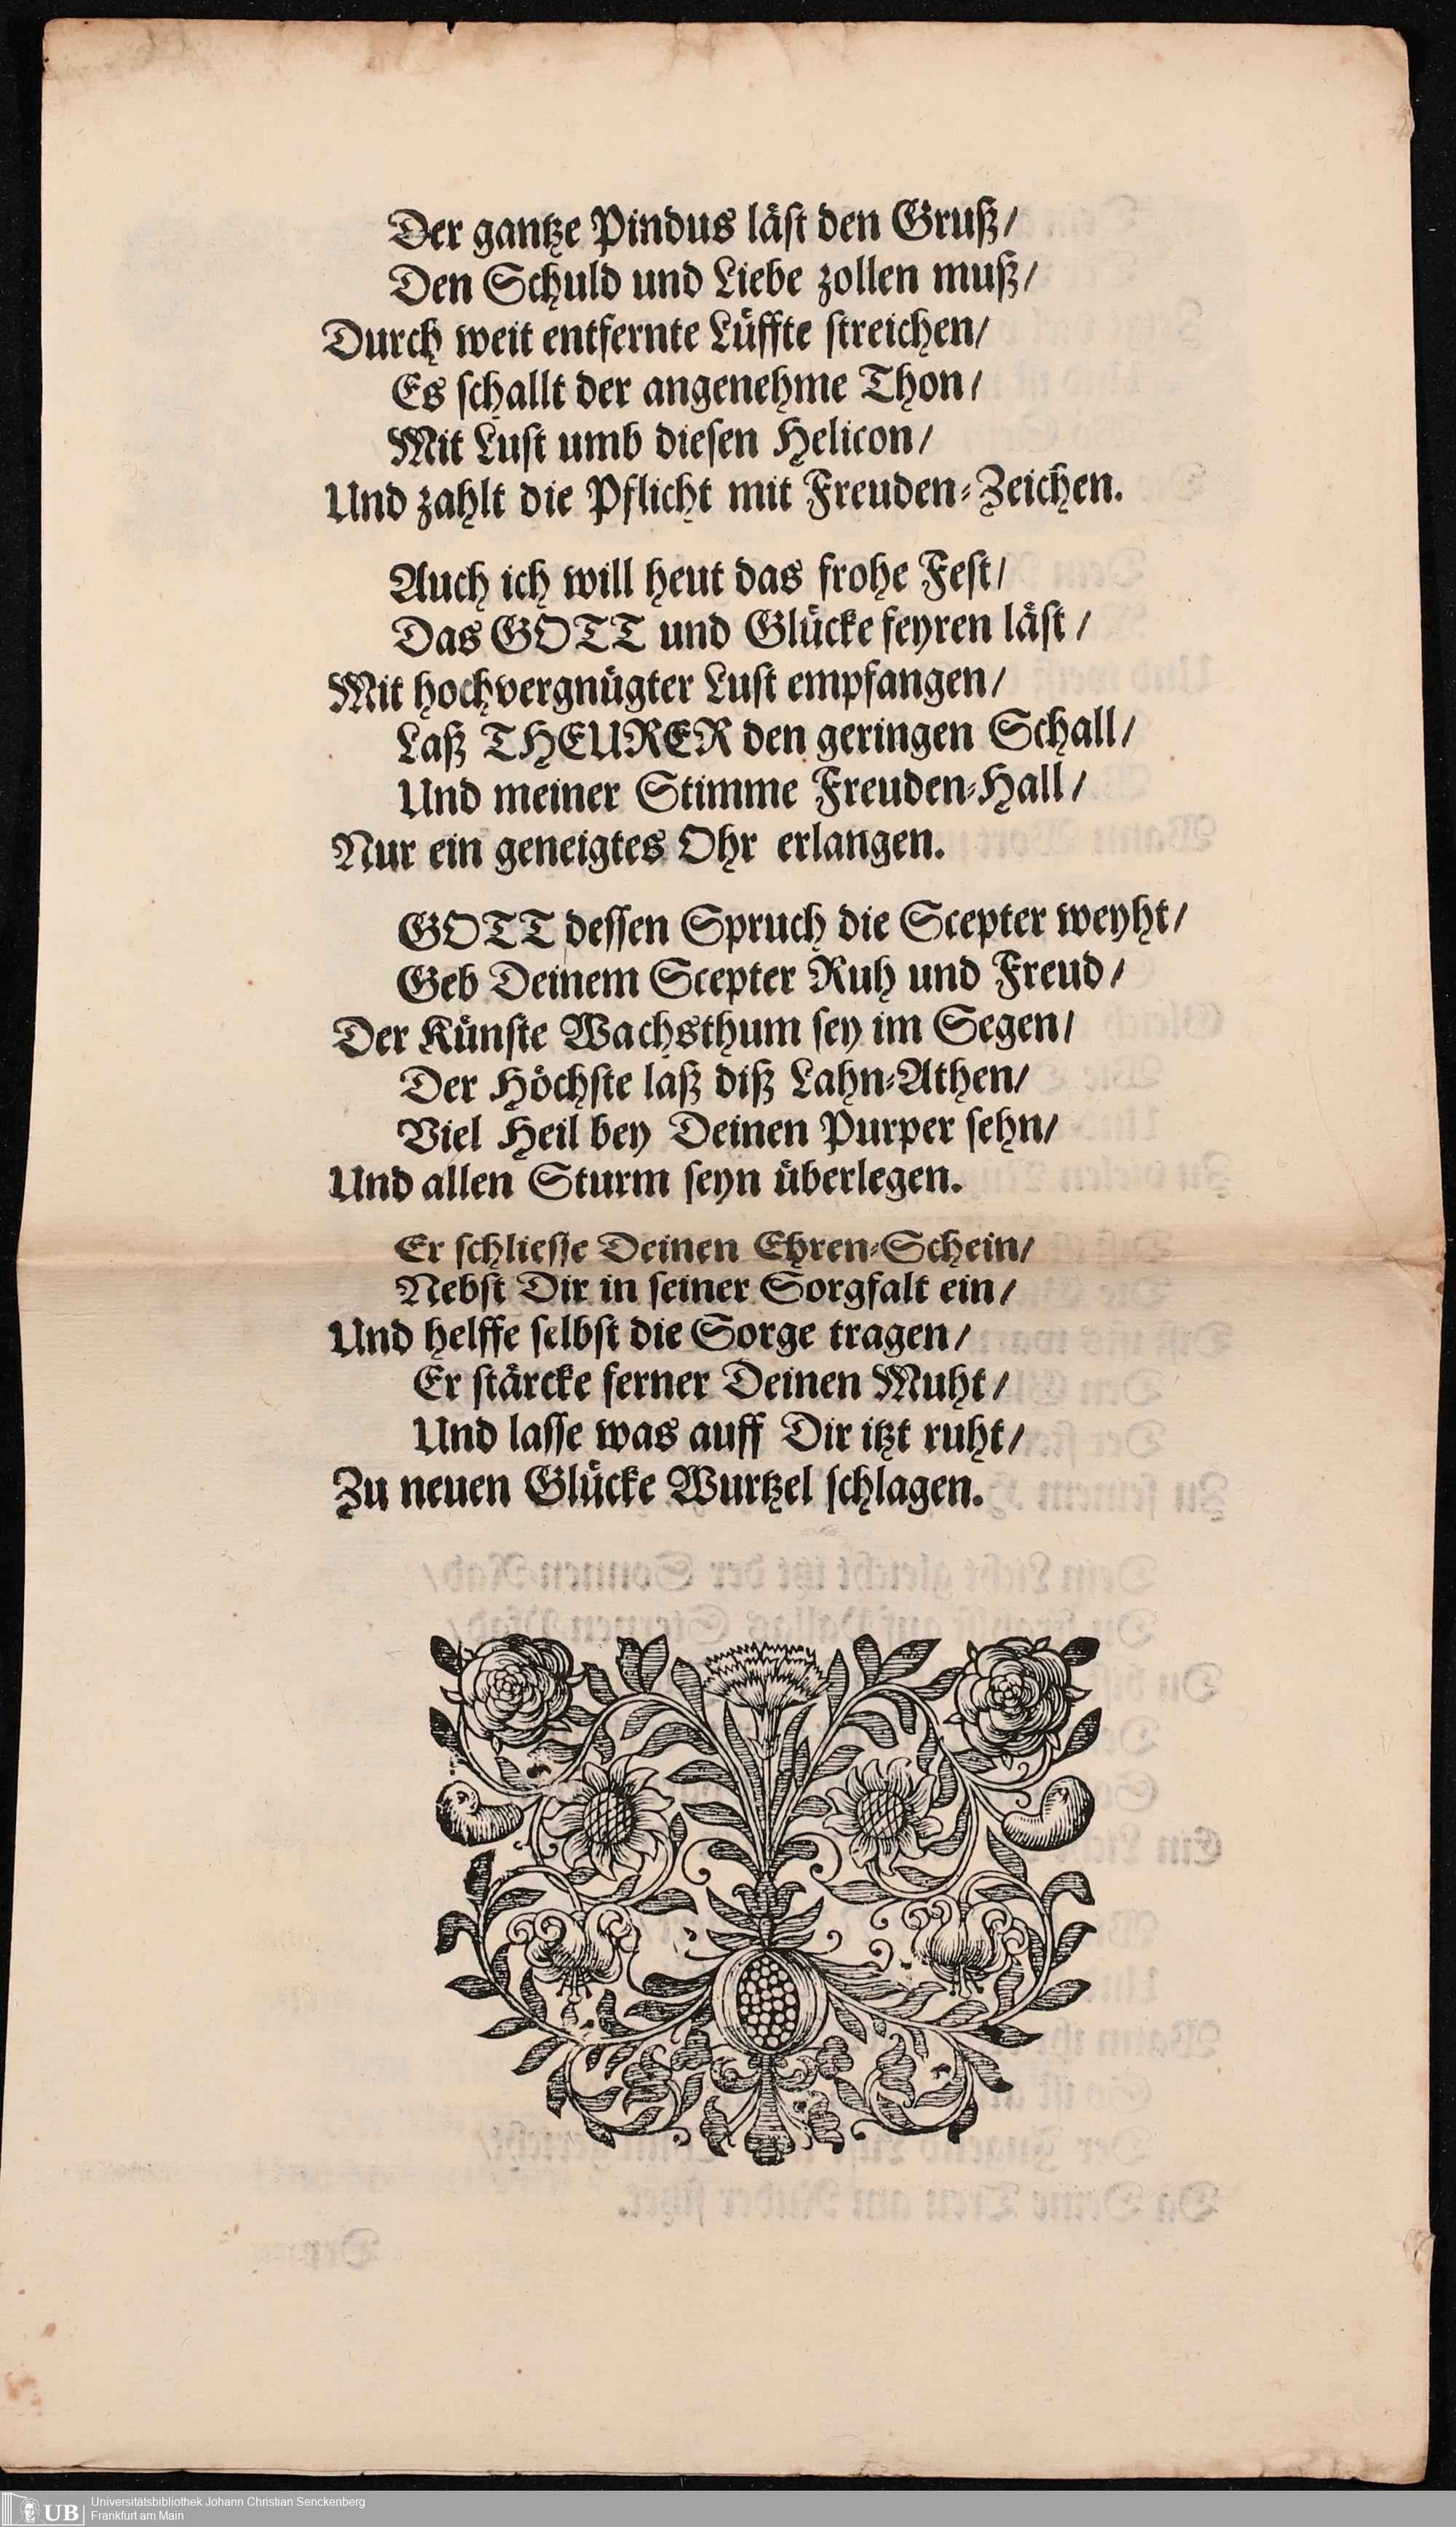 Der gantze Pindus läſt den Gruß/
Den Schuld und Liebe zollen muß/
Durch weit entfernte Lüffte ſtreichen/
Es ſchallt der angenehme Thon/
Mit Luſt umb dieſen Helicon/
Und zahlt die Pflicht mit Freuden-Zeichen.
Auch ich will heut das frohe Feſt/
Das GOTT und Glücke feyren läſt/
Mit hochvergnügter Luſt empfangen/
Laß THEURER den geringen Schall/
Und meiner Stimme Freuden-Hall/
Nur ein geneigtes Ohr erlangen.
GOTT deſſen Spruch die Scepter weyht/
Geb Deinem Scepter Ruh und Freud/
Der Künſte Wachsthum ſey im Segen/
Der Höchſte laß diß Lahn-Athen/
Viel Heil bey Deinen Purper ſehn/
Und allen Sturm ſeyn überlegen.
Er ſchlieſſe Deinen Ehren-Schein/
Nebſt Dir in ſeiner Sorgfalt ein/
Und helffe ſelbſt die Sorge tragen/
Er ſtärcke ferner Deinen Muht/
Und laſſe was auff Dir itzt ruht/
Zu neuen Glücke Wurtzel ſchlagen.
UB
Universitätsbibliothek Johann Christian Senckenberg
Frankfurt am Main